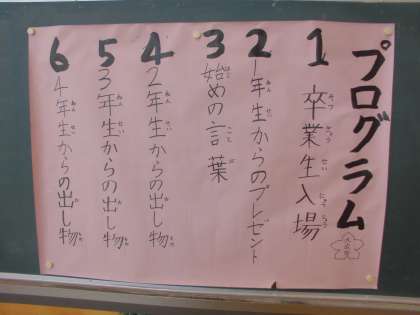 プログラム
1 卒業生入場
2 1年生からのプレゼント
3 始めの言葉
4 2年生からの出し物
5 3年生からの出し物
6 4年生からの出し物